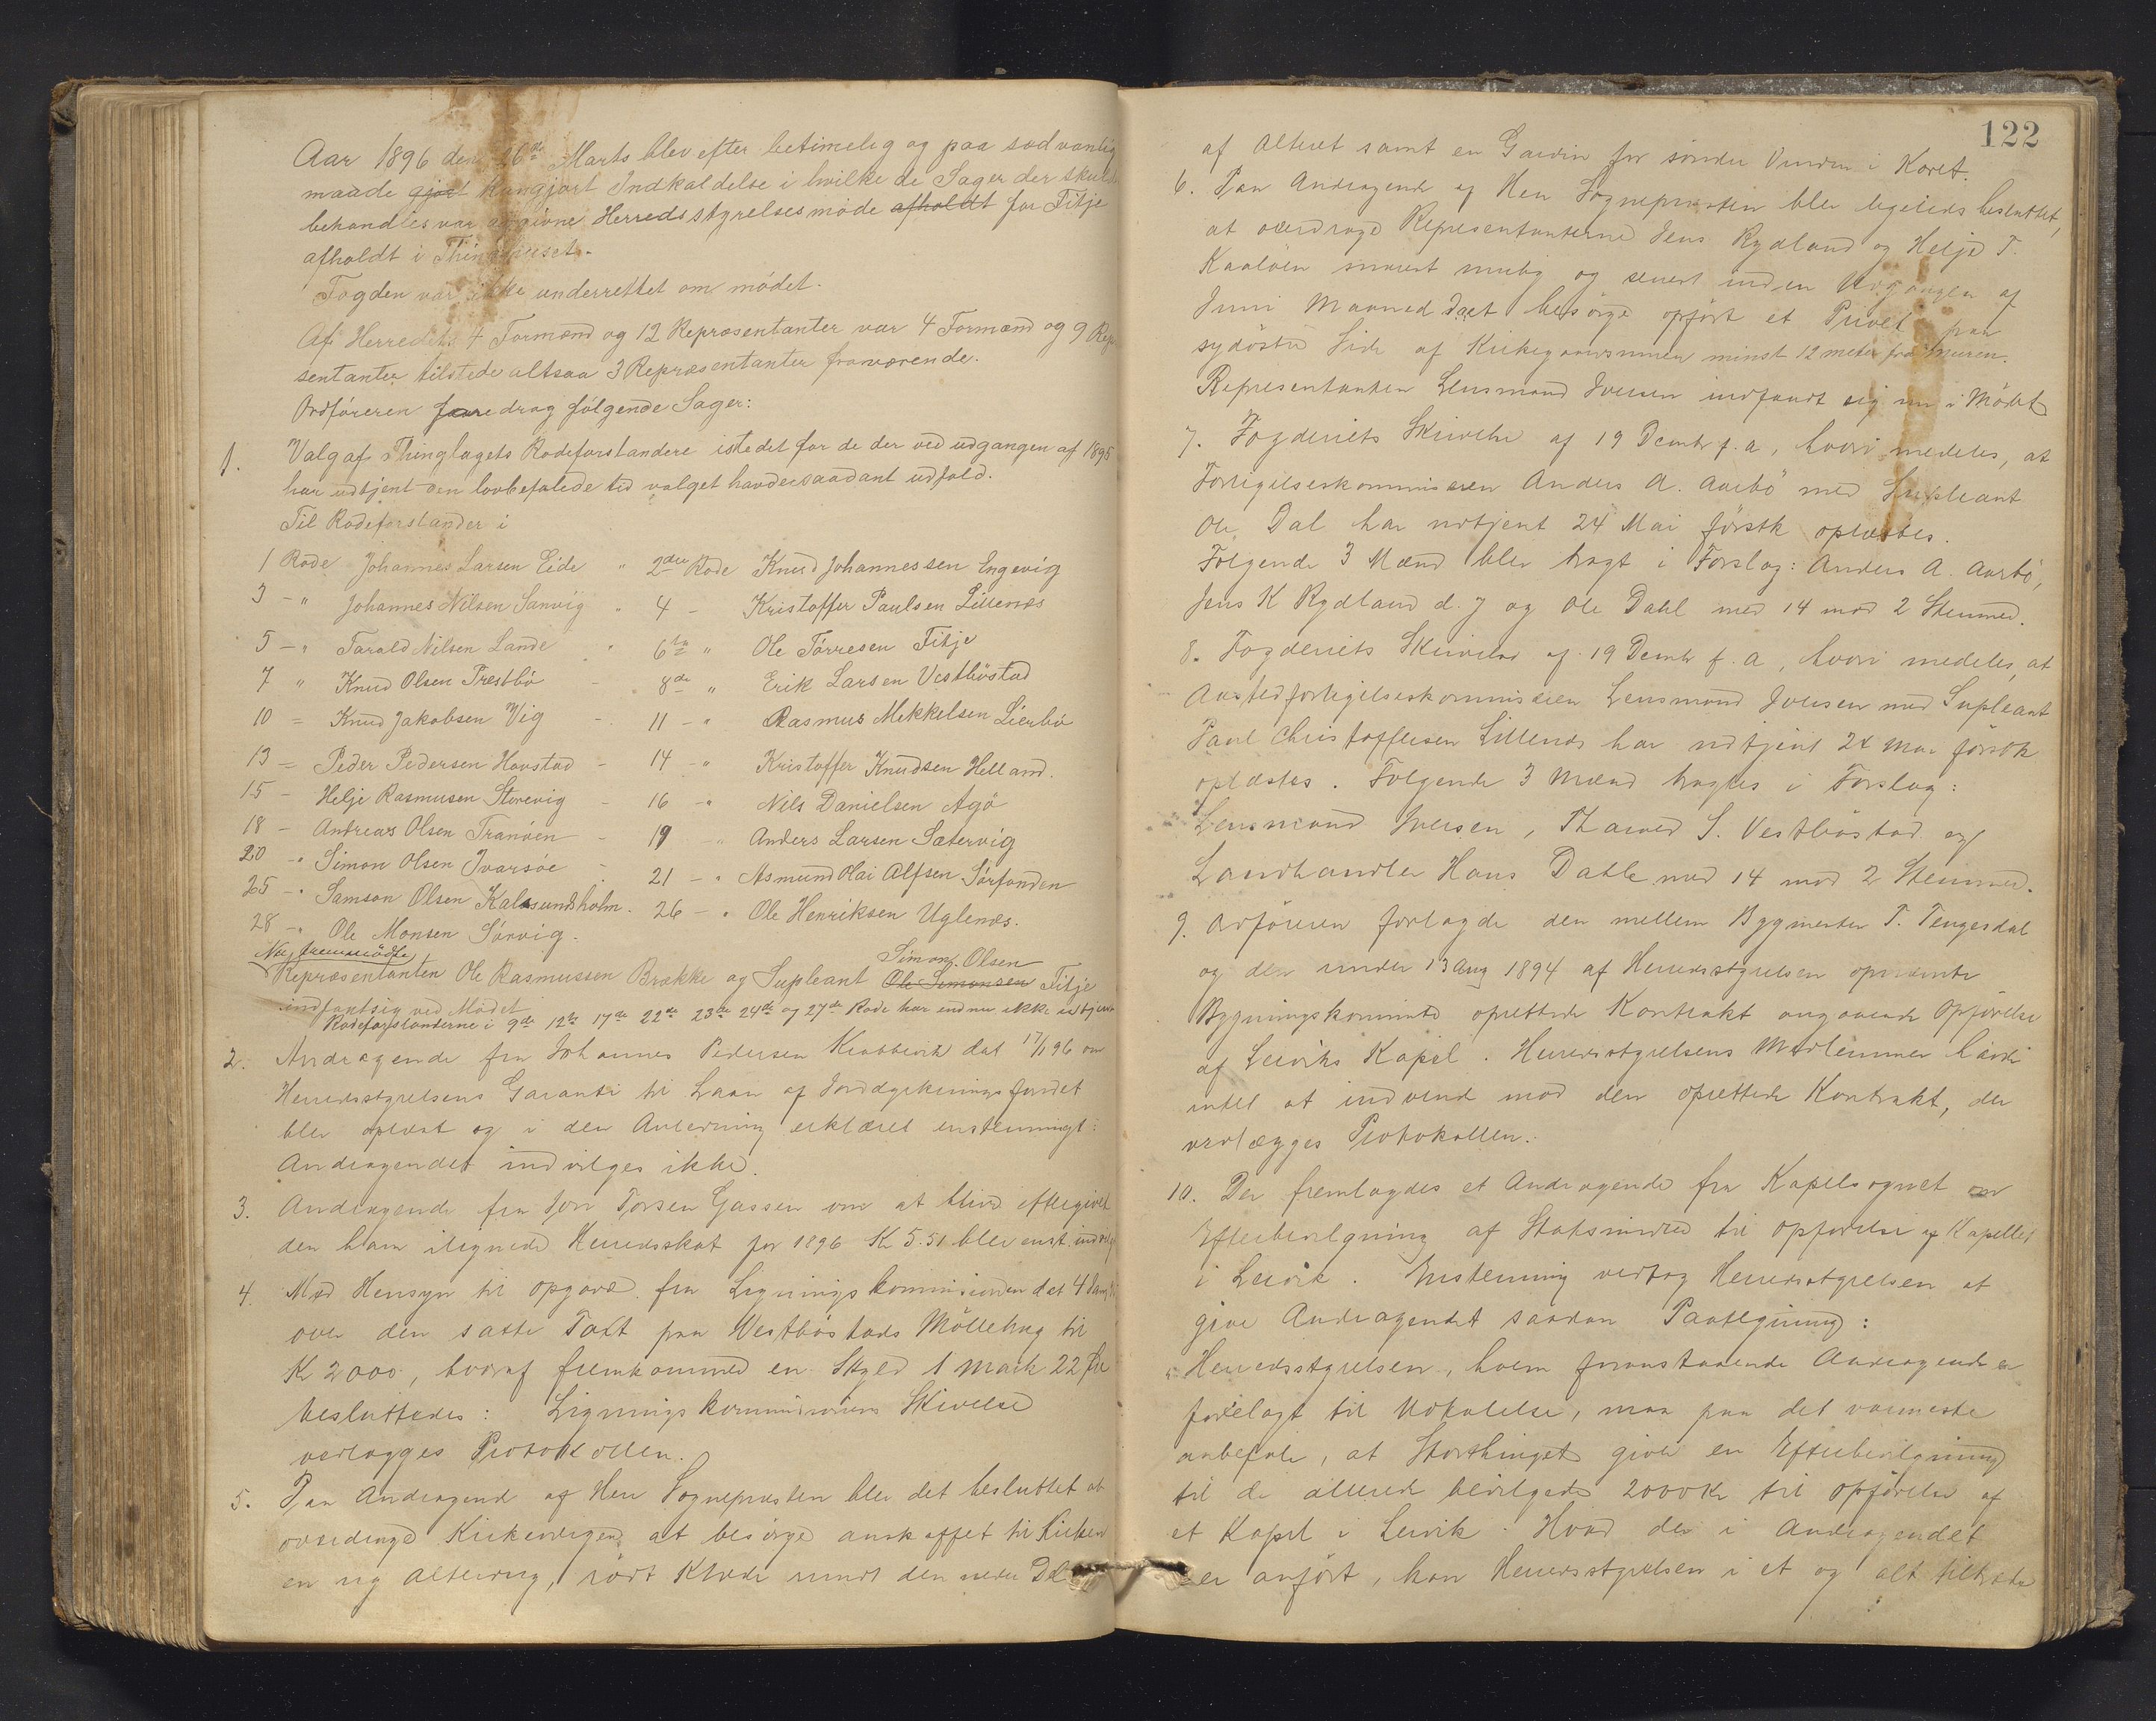 Aar 1896 den 26de Marts blev efter betimelig og paa sedvanlig
maade gjort kungjort Indkaldelse i hvilke de Sager der skulde
behandles var angivne Herredsstyrelsesmöde afholdt for Fitje
afholdt i Thinghuset.
Fogden var ikke underrettet om mödet.
Af Herredets 4 Formænd og 12 Repræsentanter var 4 Formænd og 9 Repræ
sentanter tilstede altsaa 3 Repræsentanter fraværende.
Ordföreren foredrog fölgende Sager:
1. Valg af Thinglagets Rodeforstandere istedet for de der ved udgangen af 1895
har udtjent den lovbefalede tid valget havde saadant udfald.
Til Rodeforstander i
1 Rode Johannes Larsen Eide " 2den Rode Knud Johannessen Engevig
3 - " Johannes Nilsen Sanvig " 4 - Kristoffer Paulsen Lillenæs
5 - " Tarald Nilsen Lande " 6te " Ole Törresen Fitje
7 " Knud Olsen Træstbö - 8de " Erik Larsen Vestböstad
10 = Knud Jakobsen Vig - 11 - " Rasmus Mekkelsen Lierbö
13 = Peder Pedersen Havstad - 14 - " Kristoffer Knudsen Helland.
15 - Helje Rasmusen Storevig - 16 - " Nils Danielsen Agö
18 - Andreas Olsen Tranöen - 19 - " Anders Larsen Sætervig
20 - " Simon Olsen Ivarsöe - 21 - " Asmund Olai Alfsen Sörfonden
25 - " Samson Olsen Kalsundsholm. 26 - " Ole Henriksen Uglenæs.
28 - " Ole Monsen Sörvig.
Nu fremmödte
Simon Olsen
Repræsentanten Ole Rasmussen Brække og Supleant Ole Simonsen Fitje
indfantsig ved Mödet
Rodeforstanderne i 9de 12te 17de 22de 23de 24de og 27de Rode har endnu ikke udtjent
2. Andragende fra Johannes Pedersen dat 17/1 96 om
Herredsstyrelsens Garanti til Laan af Jorddyrkningsfondet
blev oplæst og i den Anledning erklæret enstemmigt:
Andragendet indvilges ikke.
3. Andragende fra Gassen om at blive eftergivet
den ham ilignede Herredsskat for 1896 Kr 5.51 blev enst. indvilg
4. Med Hensyn til opgave fra Ligningskommissionen dat 4 Jan
over den satte Taxt paa Vestböstads Möllebrug til
Kr 2000, hvoraf fremkommed en Skyld 1 Mark 22 Öre
besluttedes: Ligningskommissionens Skrivelse
vedlægges Protokollen.
5. Paa Andragende af Herr Sognepræsten blev det besluttet at
overdrage Kirkeværgen at besörge anskaffet til Kirken
en ny alterdug, rödt Klæde rundt den nedre Del
122
af alteret samt en Gardin for söndre Vindu i Koret.
6. Paa Andragende af Herr Sognepræsten blev ligeledes besluttet,
at overdrage Repræsentanterne Jens Rydland og Helje T.
Kaalöen snarest mulig og senest inden Udgangen af
Juni Maaned d.a. at besörge opfört et Privet paa
sydöstre Side af Kirkegaarsmuren minst 12 meter fra Muren.
Representanten Lensmand Iversen indfandt sig nu i Mödet
7. Fogderiets Skrivelse af 19 Decmbr f.a, hvori medeles, at
Forligelseskommissæren Anders A. Aarbö med Supleant
Ole Dal har udtjent 24 Mai förstk oplæstes.
Fölgende 3 Mænd blev bragt i Forslag: Anders A. Aarbö,
Jens K Rydland d. y og Ole Dahl med 14 mod 2 Stemmer.
8. Fogderiets Skrivelse af 19 Decmbr f.a, hvori medeles, at
Aastedforligelseskommissæren Lensmand Iversen med Supleant
Paul Christoffersen Lillenæs har udtjent 24 Mai förstk
oplæstes. Fölgende 3 Mænd bragtes i Forslag:
Lensmand Iversen, S. Vestböstad og
Landhandler Hans Dahle med 14 mod 2 Stemmer.
9. Ordföreren forlagde den mellem Bygmester T. Tengesdal
og den under 13 Aug 1894 af Herredsstyrelsen opnævnte
Bygningskommitte oprettede Kontrakt angaaende Opförelse
af Leirviks Kapel. Herredsstyrelsens Medlemmer havde
intet at indvende mod den oprettede Kontrakt, der
vedlægges Protokollen.
10. Der fremlagdes et Andragende fra Kapelsognet om
Efterbevilgning af Statsmidler til opförelse af Kapellet
i Leirvik. Enstemmig vedtog Herredsstyrelsen at
give Andragendet saadan Paategning:
"Herredsstyrelsen, hvem foranstaaende Andragende er
forelagt til Udtalelse, maa paa det varmeste
anbefale, at Storthinget giver en Efterbevilgning
til de allerede bevilgede 2000 Kr til opförelse af
et Kapel i Leirvik. Hvad der i Andragendet
er anfört, kan Herredsstyrelsen i et og alt tiltræde